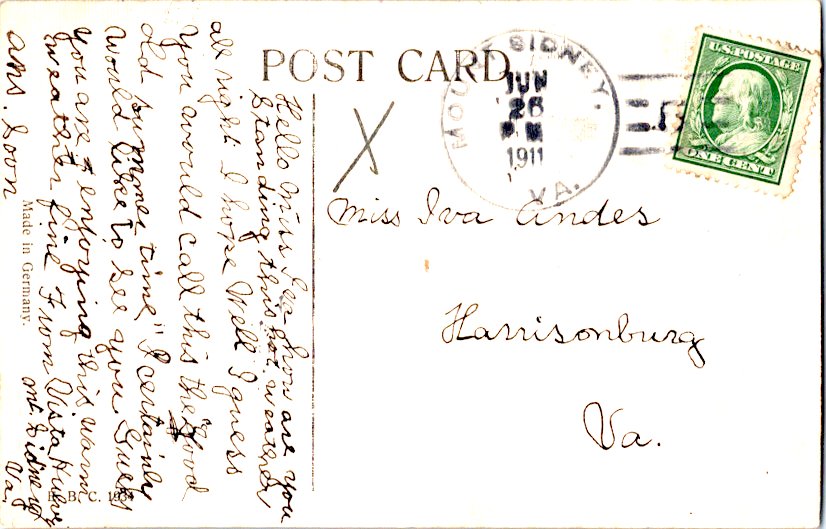 POST CARD
MOUNT SIDNEY.
JUN
26
P M
1911
VA.
U.S. POSTAGE
ONE CENT
X
Miss Iva Andes
Harrisonburg
Va.
Hello Miss Iva how are you
Standing this hot weather
all right I hope Well I guess
you would call this the "Good
old Summer time" I certainly
would like to see you Guess
you are enjoying this warm
weather fine From Vista
Mt. Sidney
Va.
ans. Soon
Made in Germany.
B. C.